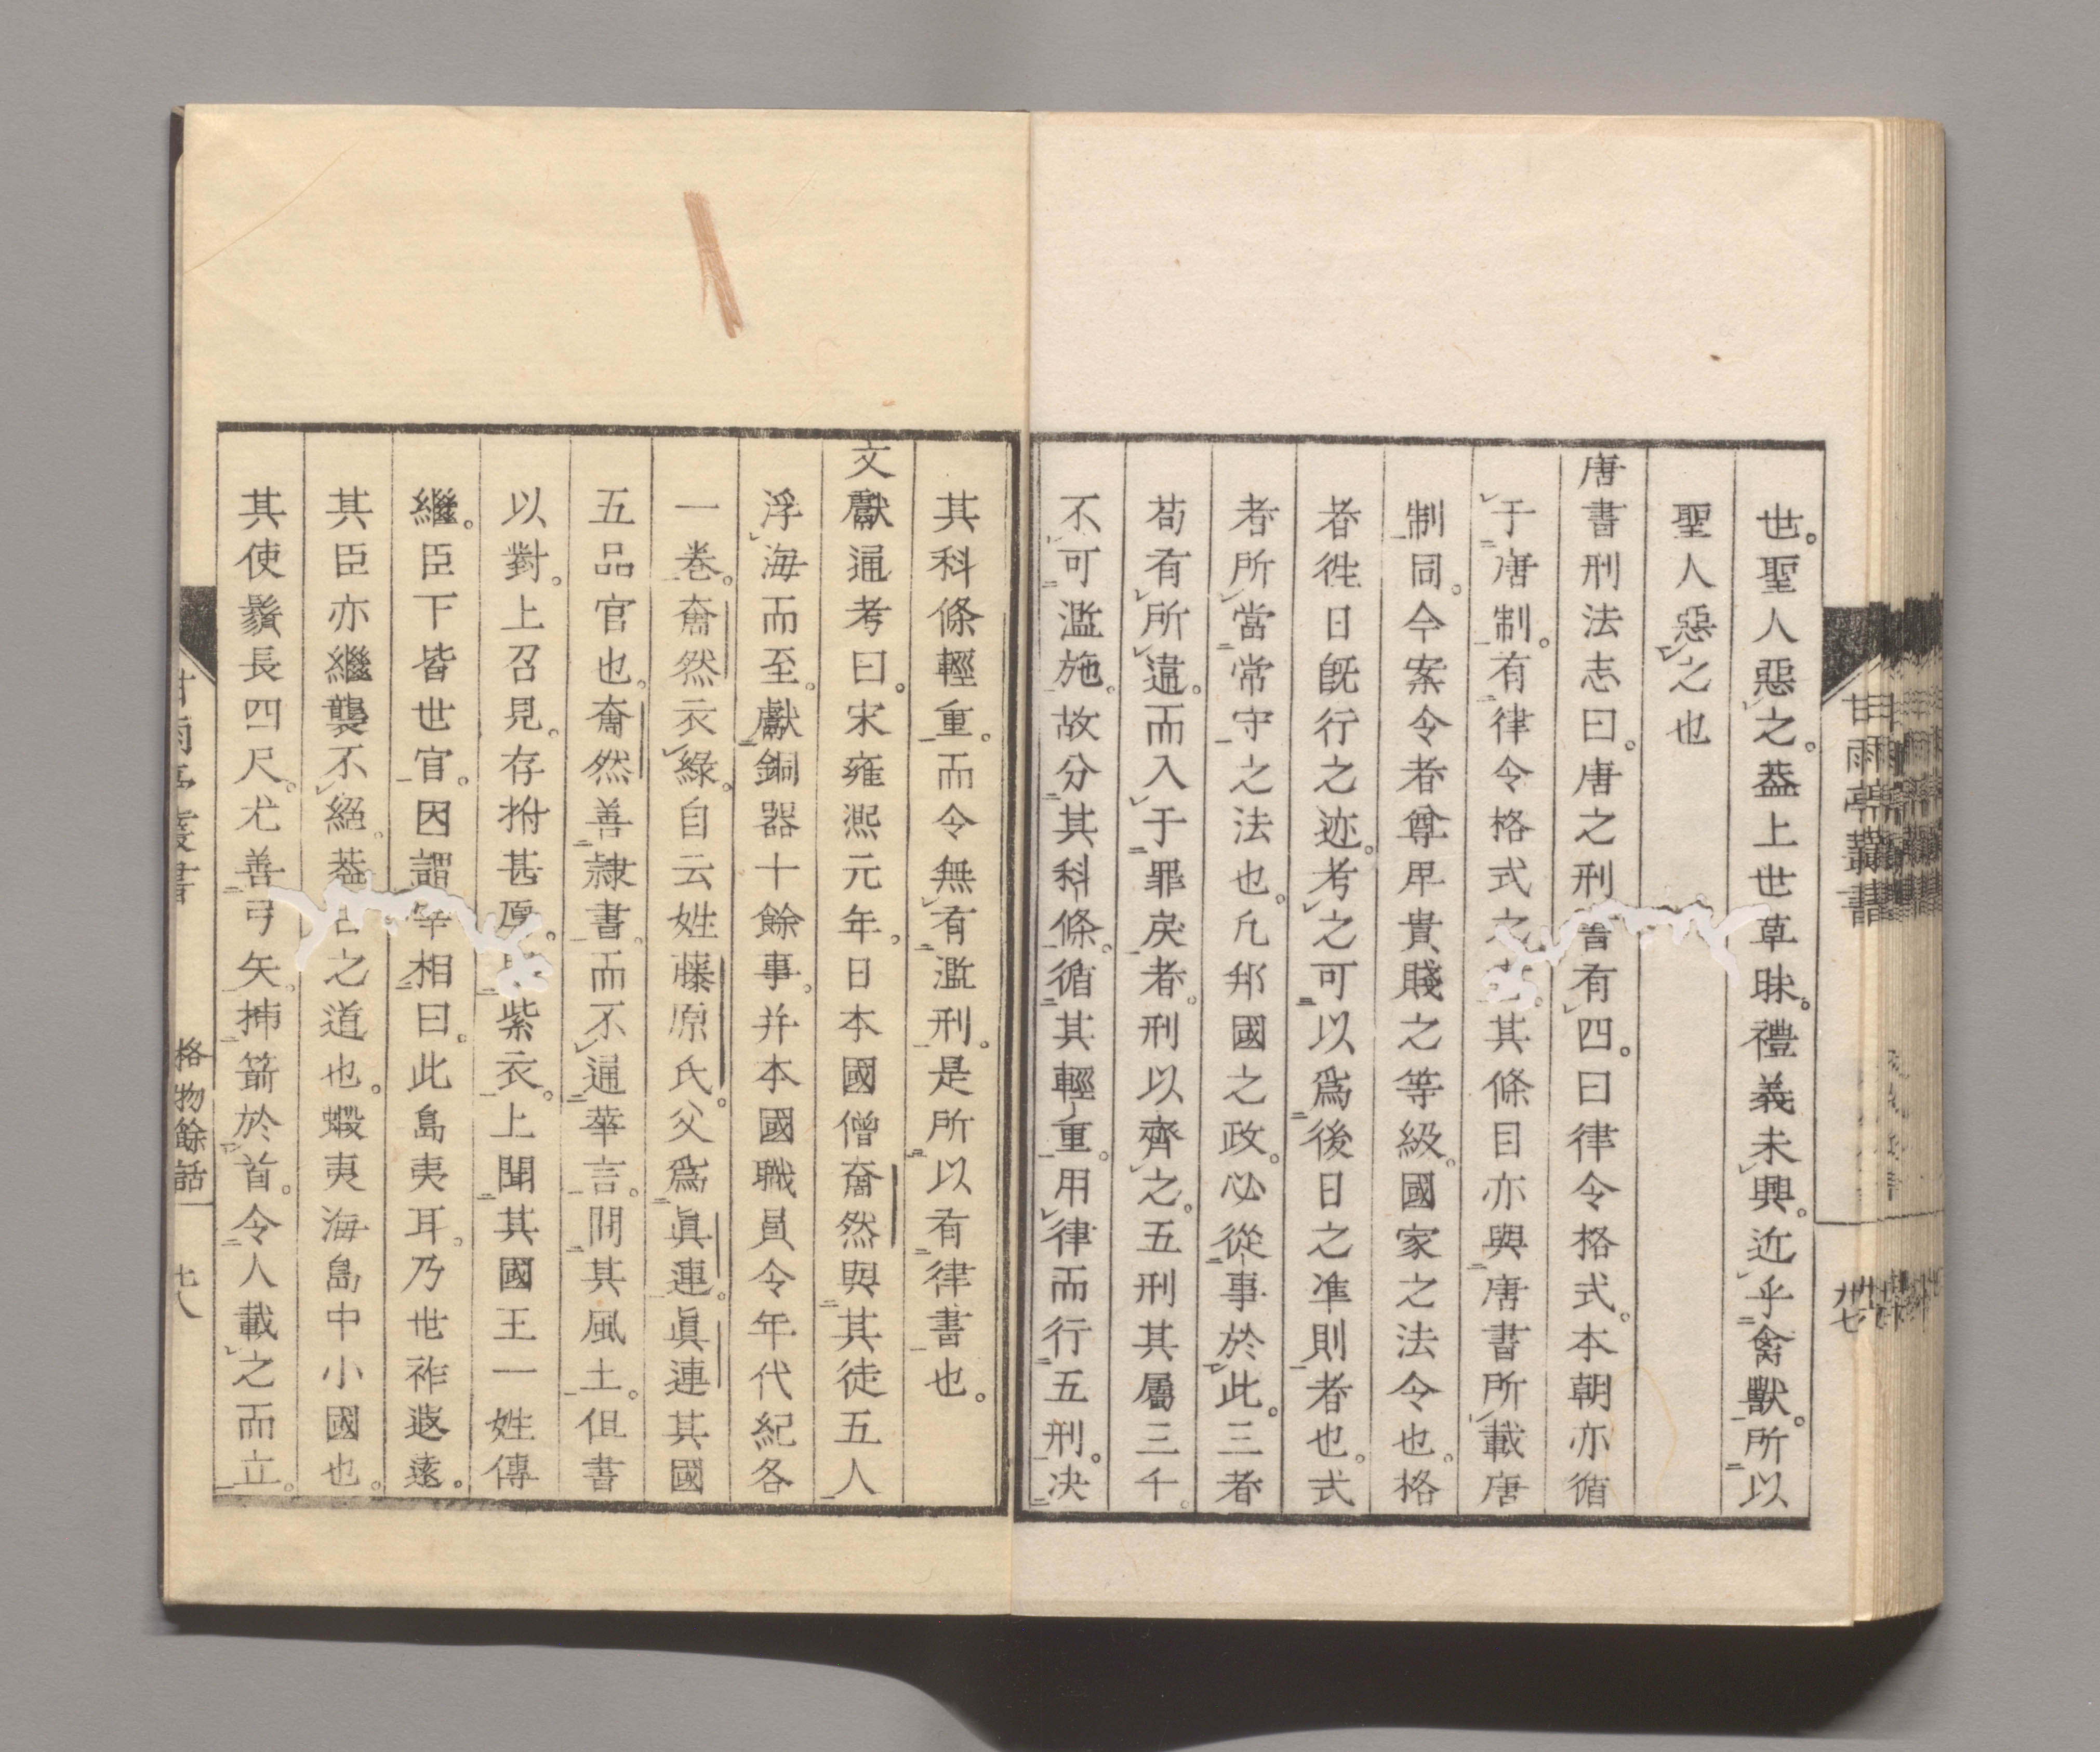 世。聖人惡之。蓋上世草昧。禮義未興。近乎禽獸。所以
聖人惡之也
唐書刑法志曰。唐之刑書有四。曰律令格式。本朝亦循
于唐制。有律令格式之。其條目亦與唐書所載唐
制同。今案令者尊卑貴賤之等級。國家之法令也。格
者徃日旣行之迹。考之可以爲後日之準則者也。式
者所當常守之法也。凡邦國之政。必從事於此。三者
苟有所違。而入于罪戾者。刑以齊之。五刑其屬三千。
不可濫施。故分其科條。循其輕重。用律而行五刑。决
其科條輕重。而令無有濫刑。是所以有律書也。
文獻通考曰。宋雍熙元年。日本國僧奝然與其徒五人
浮海而至。獻銅器十餘事。并本國職員令年代紀各
一卷。奝然衣綠。自云姓藤原氏。父爲眞連。眞連其國
五品官也。奝然善隷書。而不通華言。問其風土。但書
以對。上召見。存拊甚厚。紫衣。上聞其國王一姓傳
繼。臣下皆世官。因謂宰相曰。此島夷耳。乃世祚遐遠。
其臣亦繼襲不絕。蓋古之道也。蝦夷海島中小國也。
其使鬚長四尺。尤善弓矢。挿箭於首。令人載之而立。
甘雨亭叢書
卅七
甘雨亭叢書
格物餘話
卅八